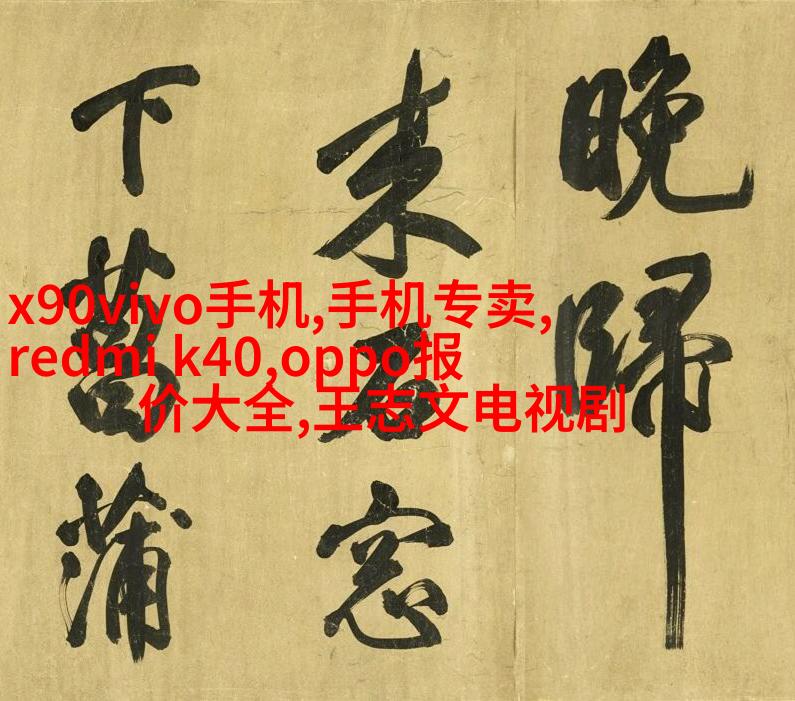 晚歸
来石窓
下菖蒲
x90vivo手机,手机专卖,
redmi k40,oppo报
价大全,王志文电视剧